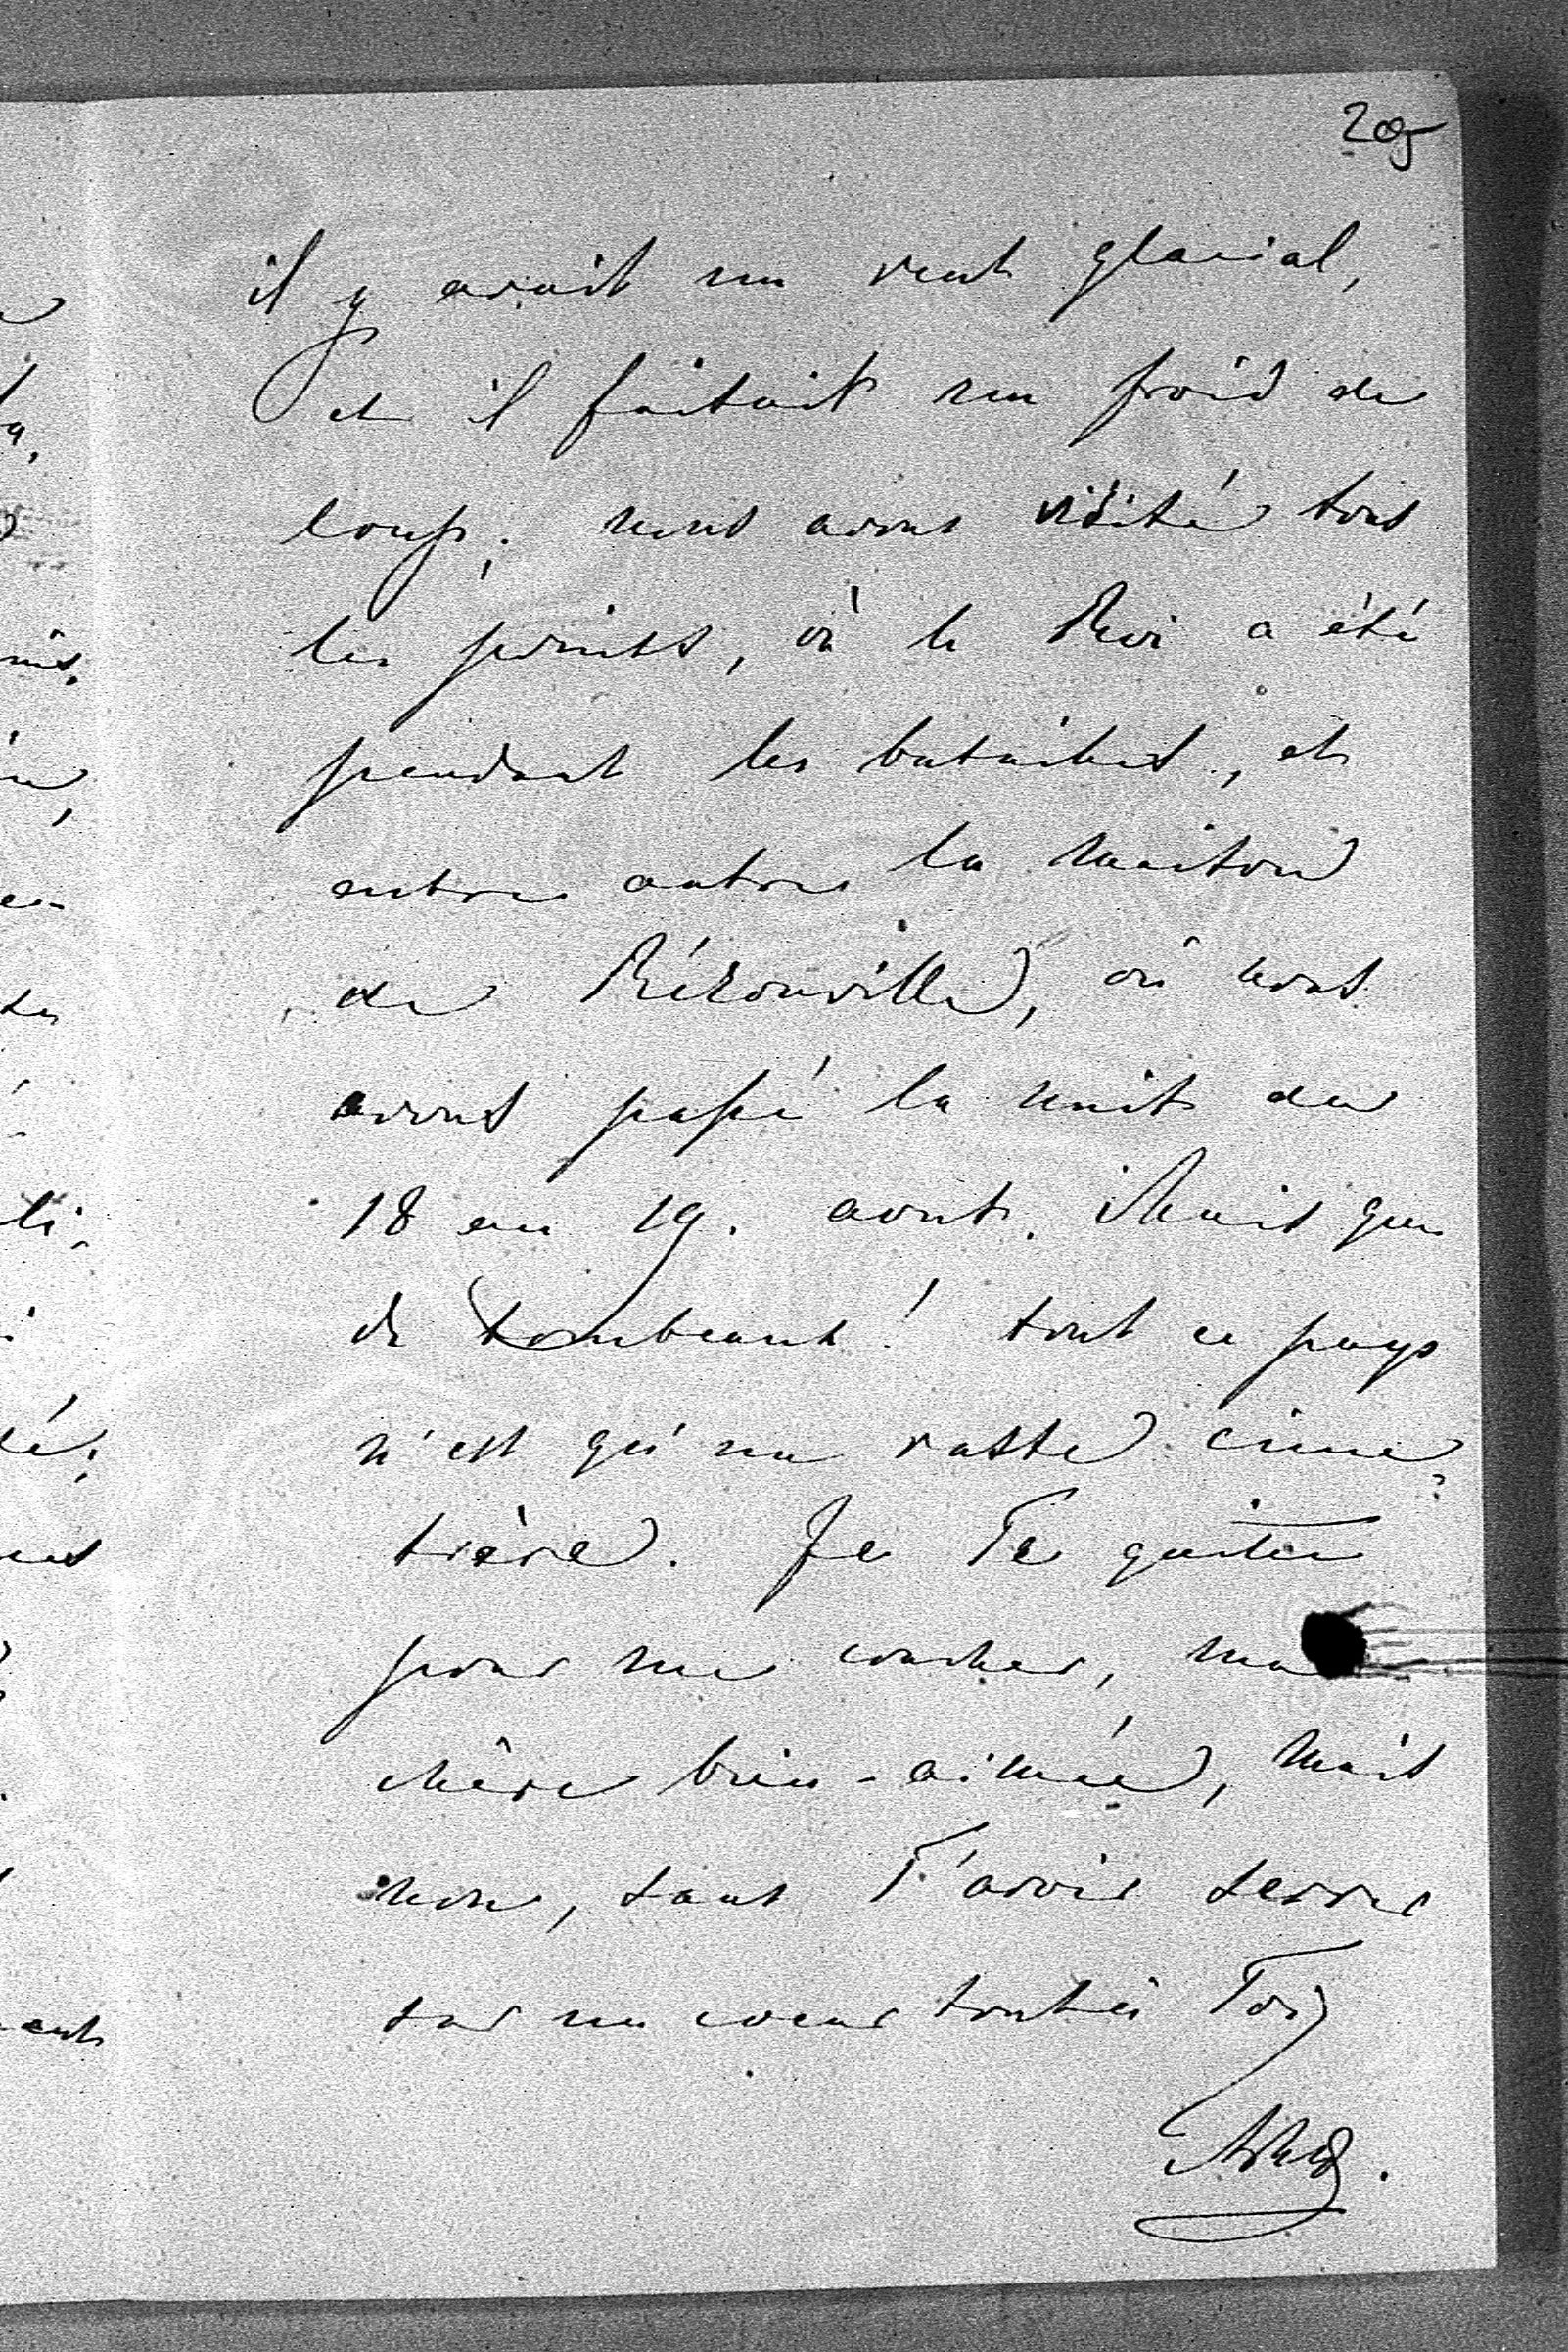 205
il y avait un vent glacial,
et il faisait un froid de
loup; nous avons visité tous
les points, où le Roi a été
pendant les batailles, et
entre autres la maison
de Rézonville, où nous
avons passé la nuit du
18 au 19. aout. Mais que
de tombeaux! tout ce pays
n'est qu'un vaste cime-
tière. Je Te quitte
pour me coucher, ma
chère bien-aimée, mais
non, sans T'avoir serrée
sur un coeur tout à Toi